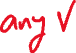 any V